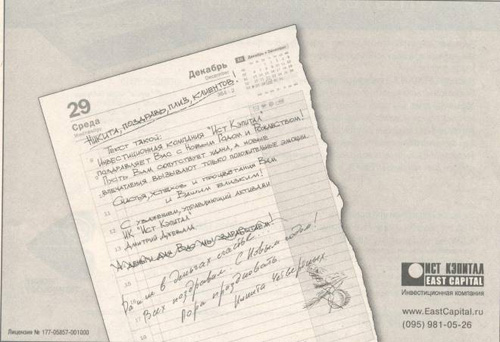 29
Среда
Декабрь
364-2
Никита, поздравь, плиз, клиентов!
Текст такой:
Инвестиционная компания "Ист Кэпитал"
поздравляет Вас с Новым Годом и Рождеством!
Пусть Вам сопутствует удача, а новые
впечатления вызывают только положительные эмоции.
Счастья, успехов и процветания Вам
и Вашим близким!
С уважением, управляющий активами
ИК "Ист Кэпитал"
Дмитрий
А деньги для Вас мы заработаем!
в деньгах счастье.
Всех поздравил. С Новым годом!
Пора праздновать
Никита Четверикых
ИСТ КЭПИТАЛ
EAST CAPITAL
Инвестиционная компания
www.EastCapital.ru
(095) 981-05-26
Лицензия № 177-05857-001000